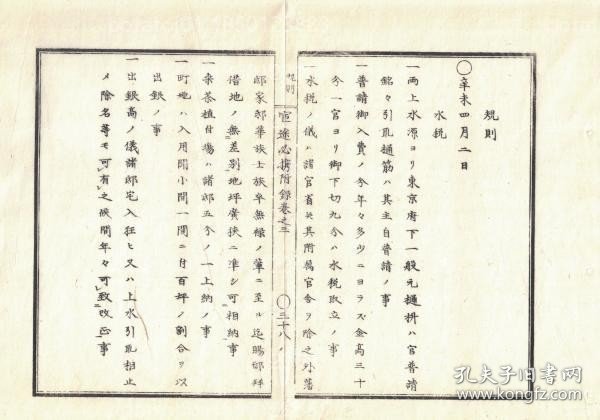 規則
〇辛未四月二日
水税
一両上水源ヨリ東京府下一般元樋枡ハ官普請
銘々引取樋筋ハ其主自普請ノ事
一普請御入費ノ今年々多少ニヨラズ金高三十
今一官ヨリ御下切九今ハ水税取立ノ事
一水税ノ儀ハ諸官省其附属官舎ヲ除之外藩
規則
官途必携附録巻之三
〇三十八ノ
邸家邸華族士族卒無禄ノ輩ニ至ル迄賜邸拝
借地ノ無差別地坪廣狭ニ準シ可相納事
一桑茶植付場ハ諸邸五分ノ一上納ノ事
一町地ハ入用間小間一間ニ付百坪ノ割合ヲ以
出銀ノ事
一出銀高ノ儀諸邸宅入狂ヒ又ハ上水引取相止
メ除名等モ可有之候間年々可致改正事
孔夫子旧书网